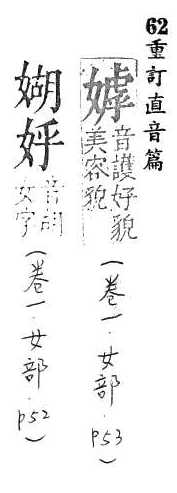 62重訂直音篇
嫭音護好貌美容貌
(卷一·女部·P53)
婟㛂音胡女字
(卷一·女部·P52)